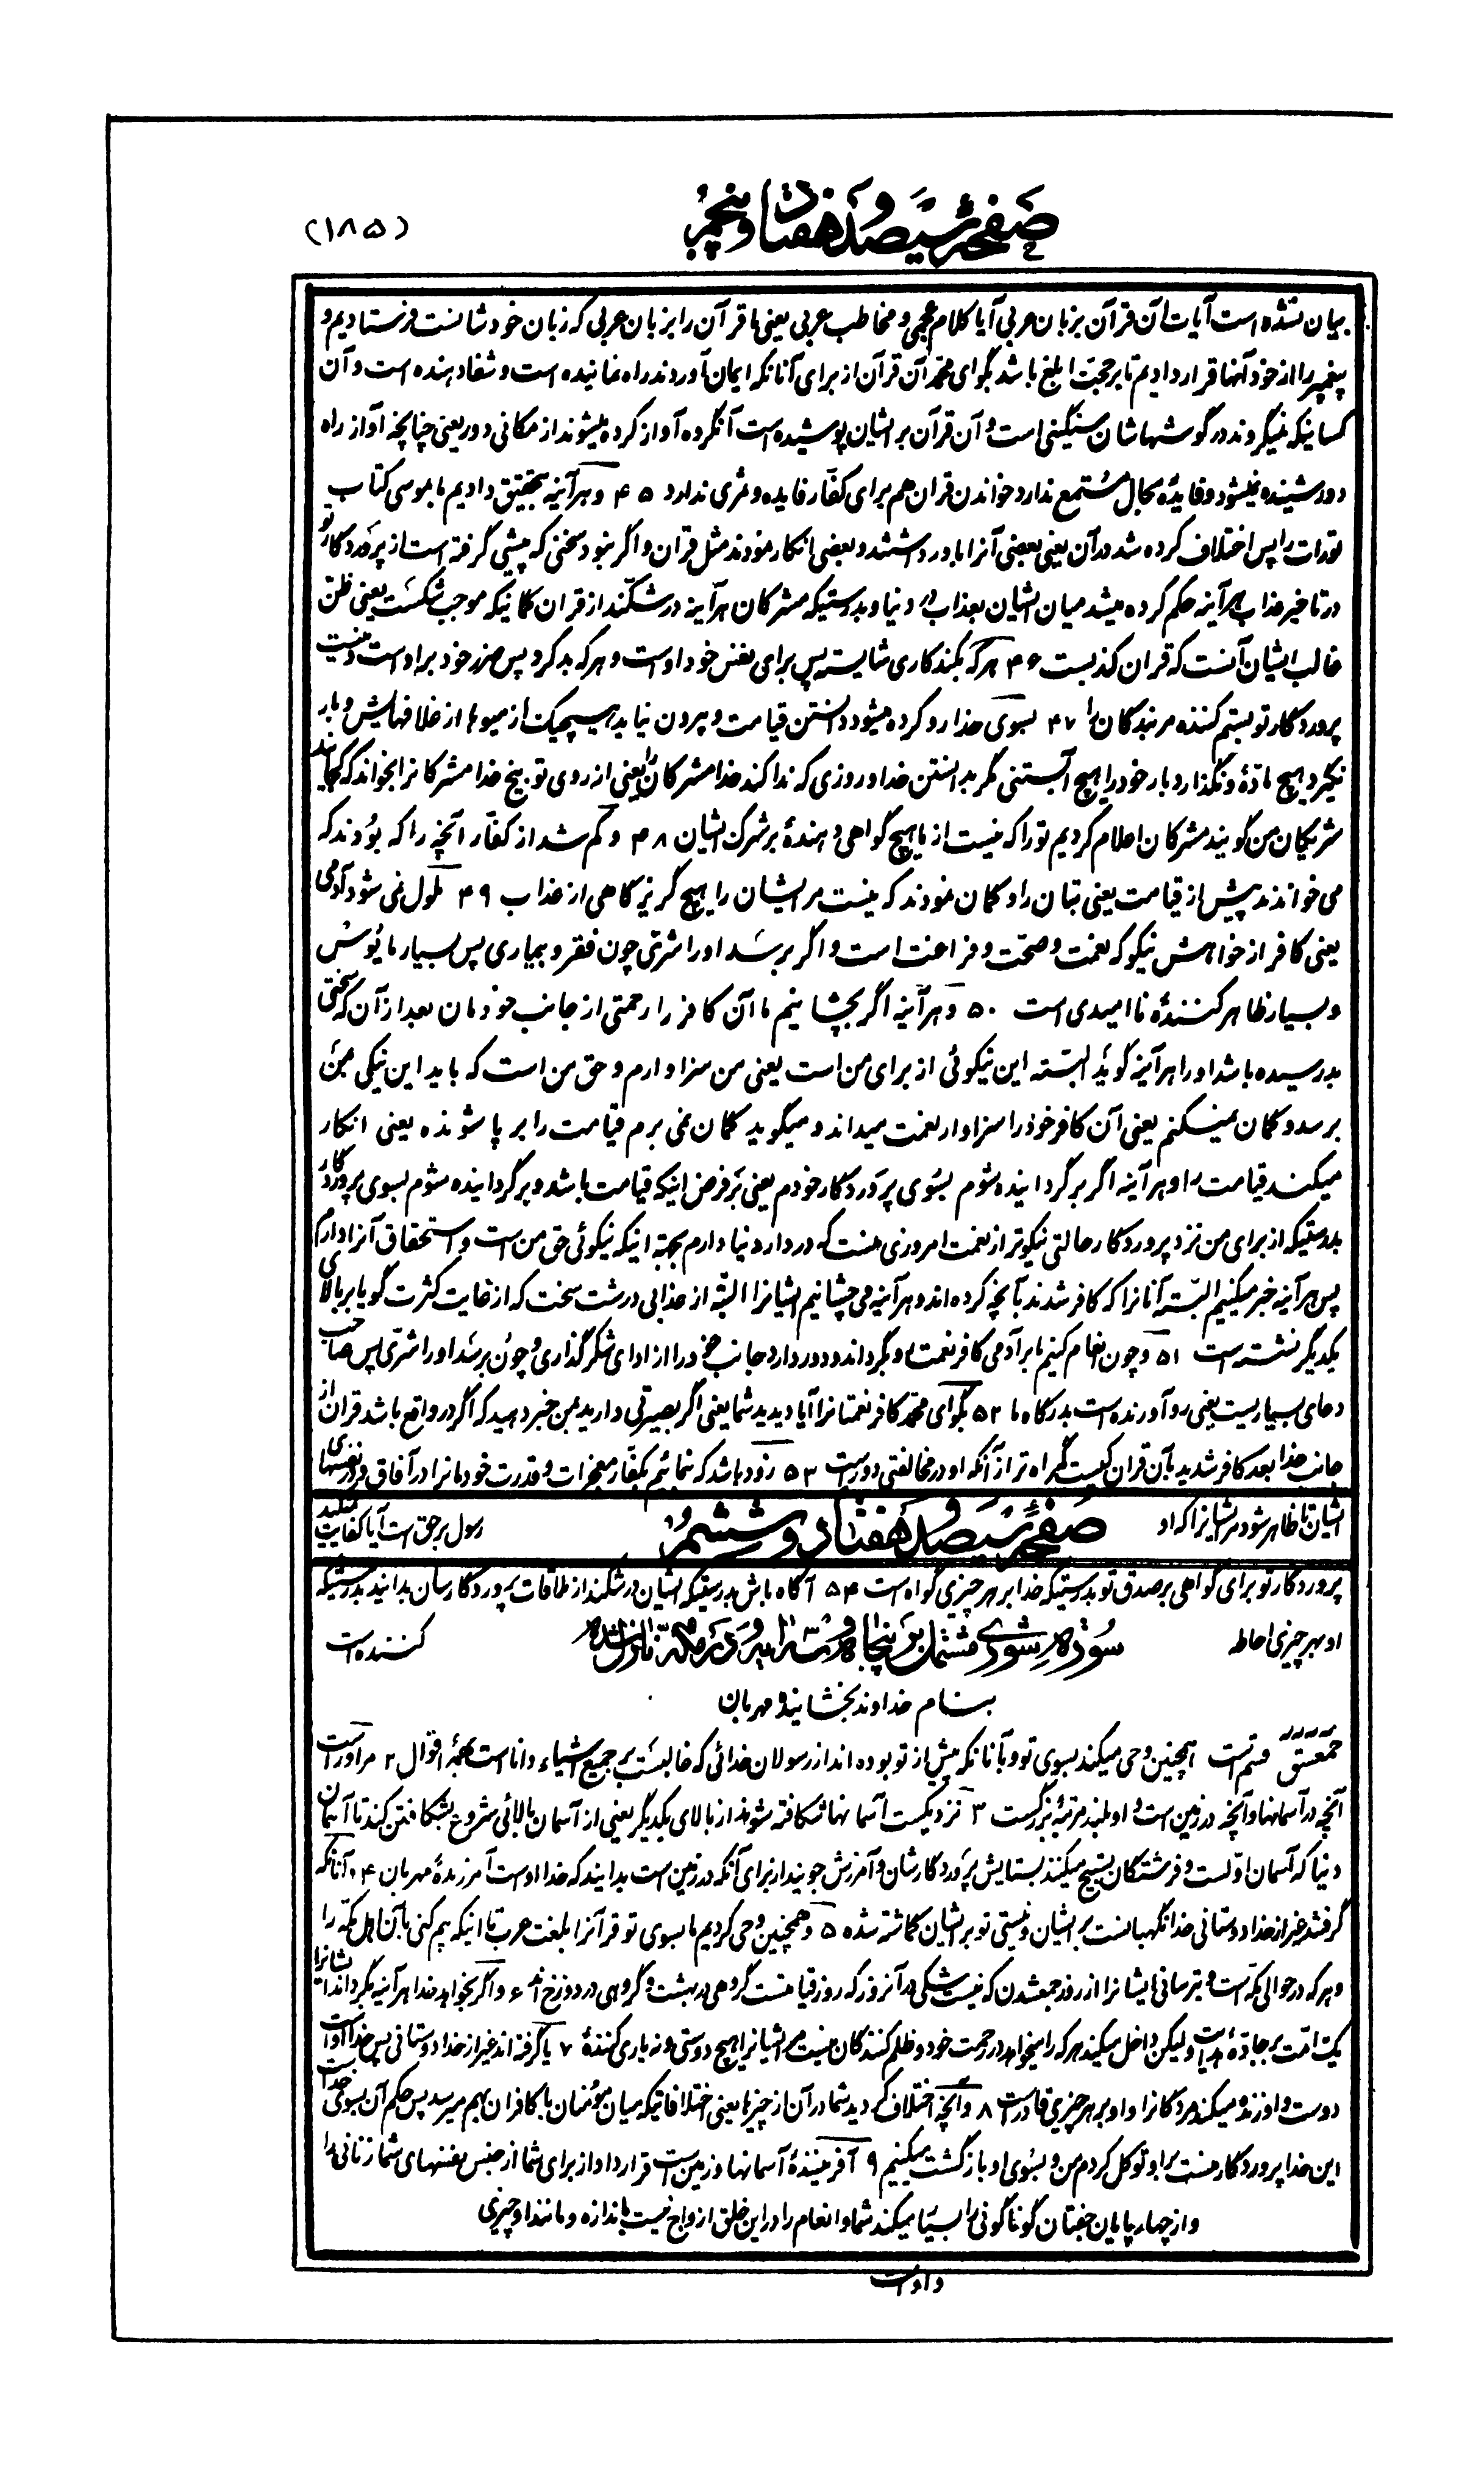 صفحه سیصد و هفتاد و پنجم
(۱۸۵)
بیان نشده است آیات آن قرآن بزبان عربی آیا کلام عجمی و مخاطب عربی یعنی ما قرآن را بزبان عربی که زبان خودشانست فرستادیم و
پیغمبر را از خود آنها قرار دادیم تا بر حجت ابلغ باشد بگو ای محمد آن قرآن از برای آنانکه ایمان آوردند راه نماینده است و شفا دهنده است و آن
کسانیکه نمیگروند در گوشهاشان سنگینی است و آن قرآن بر ایشان پوشیده است آنگروه آواز کرده میشوند از مکانی دور یعنی چنانچه آواز راه
دور شنیده نمیشود و فایده بحال مستمع ندارد خواندن قران هم برای کفار فایده و ثمری ندارد ۴۵ و هرآینه بتحقیق دادیم ما بموسی کتاب
تورات را پس اختلاف کرده شد در آن یعنی بعضی آنرا باور داشتند و بعضی انکار نمودند مثل قران و اگر نبود سخنی که پیشی گرفته است از پروردگار تو
در تاخیر عذاب هرآینه حکم کرده میشد میان ایشان بعذاب در دنیا و بدرستیکه مشرکان هرآینه در شکند از قران گمانیکه موجب شکست یعنی ظن
غالب ایشان آنست که قران کذبست ۴۶ هر که بکند کاری شایسته پس برای نفس خود اوست و هر که بد کرد پس ضرر خود بر اوست و نیست
پروردگار تو بستم کننده مر بندگان را ۴۷ بسوی خدا رو کرده میشود دانستن قیامت و بیرون نیاید هیچیک از میوها از غلافهایش و بار
نگیرد هیچ مادهٔ و نگذارد بار خود را هیچ آبستنی مگر بدانستن خدا و روزی که ندا کند خدا مشرکان را یعنی از روی توبیخ خدا مشرکانرا بخواند که کجایند
شریکان من گویند مشرکان اعلام کردیم تو را که نیست از ما هیچ گواهی دهندهٔ بر شرک ایشان ۴۸ و گم شد از کفار آنچه را که بودند که
می خواندند پیش از قیامت یعنی بتان را و گمان نمودند که نیست مر ایشان را هیچ گریزگاهی از عذاب ۴۹ ملول نمی شود آدمی
یعنی کافر از خواهش نیکو که نعمت و صحّت و فراغت است و اگر برسد او را شری چون فقر و بیماری پس بسیار مایوس
و بسیار ظاهر کنندهٔ ناامیدی است ۵۰ و هرآینه اگر بچشانیم ما آن کافر را رحمتی از جانب خودمان بعد از آن که سختی
بد رسیده باشد او را هرآینه گوید البته این نیکوئی از برای من است یعنی من سزاوارم و حق من است که باید این نیکی بمن
برسد و گمان نمیکنم یعنی آن کافر خود را سزاوار نعمت میداند و میگوید گمان نمی برم قیامت را بر پا شونده یعنی انکار
میکند قیامت را و هرآینه اگر برگردانیده شوم بسوی پروردگار خودم یعنی بر فرض اینکه قیامت باشد و برگردانیده شوم بسوی پروردگار
بدرستیکه از برای من نزد پروردگار حالتی نیکوتر از نعمت امروزی منست که در دار دنیا دارم بجهته اینکه نیکوئی حق من است و استحقاق آنرا دارم
پس هرآینه خبر میکنیم البته آنانرا که کافر شدند بآنچه کرده اند و هرآینه می چشانیم ایشانرا البته از عذابی درشت سخت که از غایت کثرت گویا بر بالای
یکدیگر نشسته است ۵۱ و چون انعام کنیم ما بر آدمی کافر نعمت رو بگرداند و دور دارد جانب خود را از ادای شکر گذاری و چون برسد او را شرّی پس صاحب
دعای بسیاریست یعنی رو آورنده است بدرگاه ما ۵۲ بگو ای محمد کافر نعمتانرا آیا دیدید شما یعنی اگر بصیرتی دارید بمن خبر دهید که اگر در واقع باشد قران از
جانب خدا بعد کافر شدید بآن قران کیست گمراه تر از آنکه او در مخالفتی دور است ۵۳ زود باشد که نمائیم بکفار معجزات و قدرت خودمانرا در آفاق و در نفسهای
ایشان تا ظاهر شود مر ایشانرا که او
صفحه سیصد و هفتاد و ششم
رسول بر حق است آیا کفایت نمیکند
پروردگار تو برای گواهی بر صدق تو بدرستیکه خدا بر هر چیزی گواه است ۵۴ آگاه باش بدرستیکه ایشان در شکند از ملاقات پروردگارشان بدانید بدرستیکه
او بهر چیزی احاطه
سوره شوری مشتمل بر پنجاه و سه آیه و در مکه نازل شده
کننده است
بنام خداوند بخشاینده مهربان
حمعسق قسم است همچنین وحی میکند بسوی تو و بآنانکه پیش از تو بوده اند از رسولان خدائی که غالبست بر جمیع اشیاء و دانا است بهمهٔ اقوال ۲ مر او راست
آنچه در آسمانها و آنچه در زمین است و او بلند مرتبهٔ بزرگست ۳ نزدیکست آسمانها شکافته شوند از بالای یکدیگر یعنی از آسمان بالائی شروع بشکافتن کند تا آسمان
دنیا که آسمان اوّلست و فرشتگان تسبیح میکنند بستایش پروردگارشان و آمرزش جویند از برای آنکه در زمین است بدانید که خدا اوست آمرزندهٔ مهربان ۴ و آنانکه
گرفتند غیر از خدا دوستانی خدا نگهبانست بر ایشان و نیستی تو بر ایشان گماشته شده ۵ و همچنین وحی کردیم ما بسوی تو قرآنرا بلغت عرب تا اینکه بیم کنی بآن اهل مکّه را
و هر که در حوالی مکه است و بترسانی ایشانرا از روز جمعشدن که نیست شکی در آنروز که روز قیامتست گروهی در بهشت و گروهی در دوزخ اند ۶ و اگر بخواهد خدا هرآینه بگرداند ایشانرا
یک امّت بر جادّهٔ هدایت ولیکن داخل میکند هر که را میخواهد در رحمت خود و ظلم کنندگان نیست مر ایشانرا هیچ دوستی و نه یاری کنندهٔ ۷ یا گرفته اند غیر از خدا دوستانی پس خدا اوست
دوست و او زنده میکند مردگانرا و او بر هر چیزی قادر است ۸ و آنچه اختلاف کردید شما در آن از چیزها یعنی اختلافاتیکه میان مؤمنان با کافران بهم میرسد پس حکم آن بسوی خداست
این خدا پروردگار منست بر او توکل کردم من و بسوی او بازگشت میکنیم ۹ آفرینندهٔ آسمانها و زمین است قرار داد از برای شما از جنس نفسهای شما زنانی را
و از چهار پایان جفتان گوناگونی را بسیار میکند شما و انعام را در این خلق ازواج نیست باندازه و مانند او چیزی
و اوست